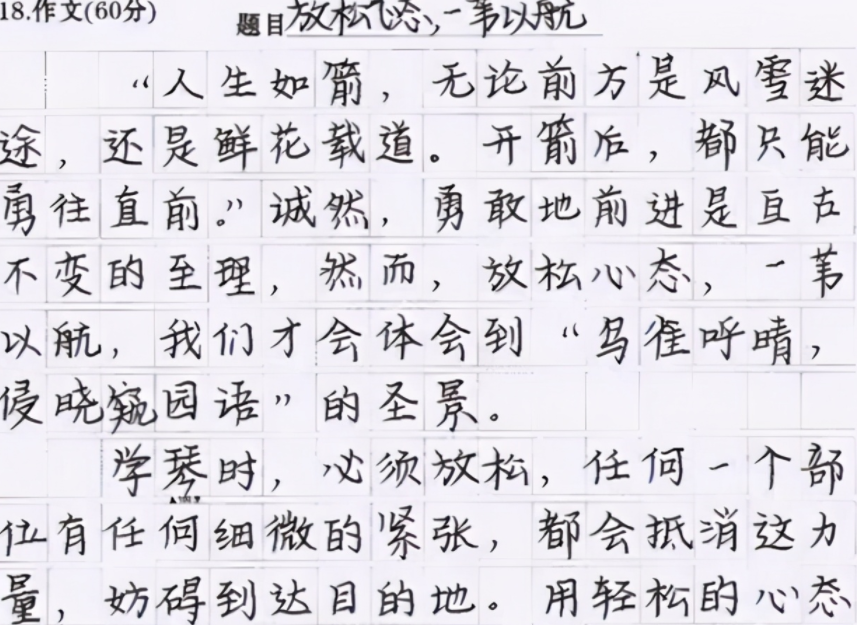 18.作文(60分) 题目放松心态,一苇以航
“人生如箭,无论前方是风雪迷
途,还是鲜花载道。开箭后,都只能
勇往直前。”诚然,勇敢地前进是亘古
不变的至理,然而,放松心态,一苇
以航,我们才会体会到“鸟雀呼晴,
侵晓窥园语”的圣景。
学琴时,必须放松,任何一个部
位有任何细微的紧张,都会抵消这力
量,妨碍到达目的地。用轻松的心态